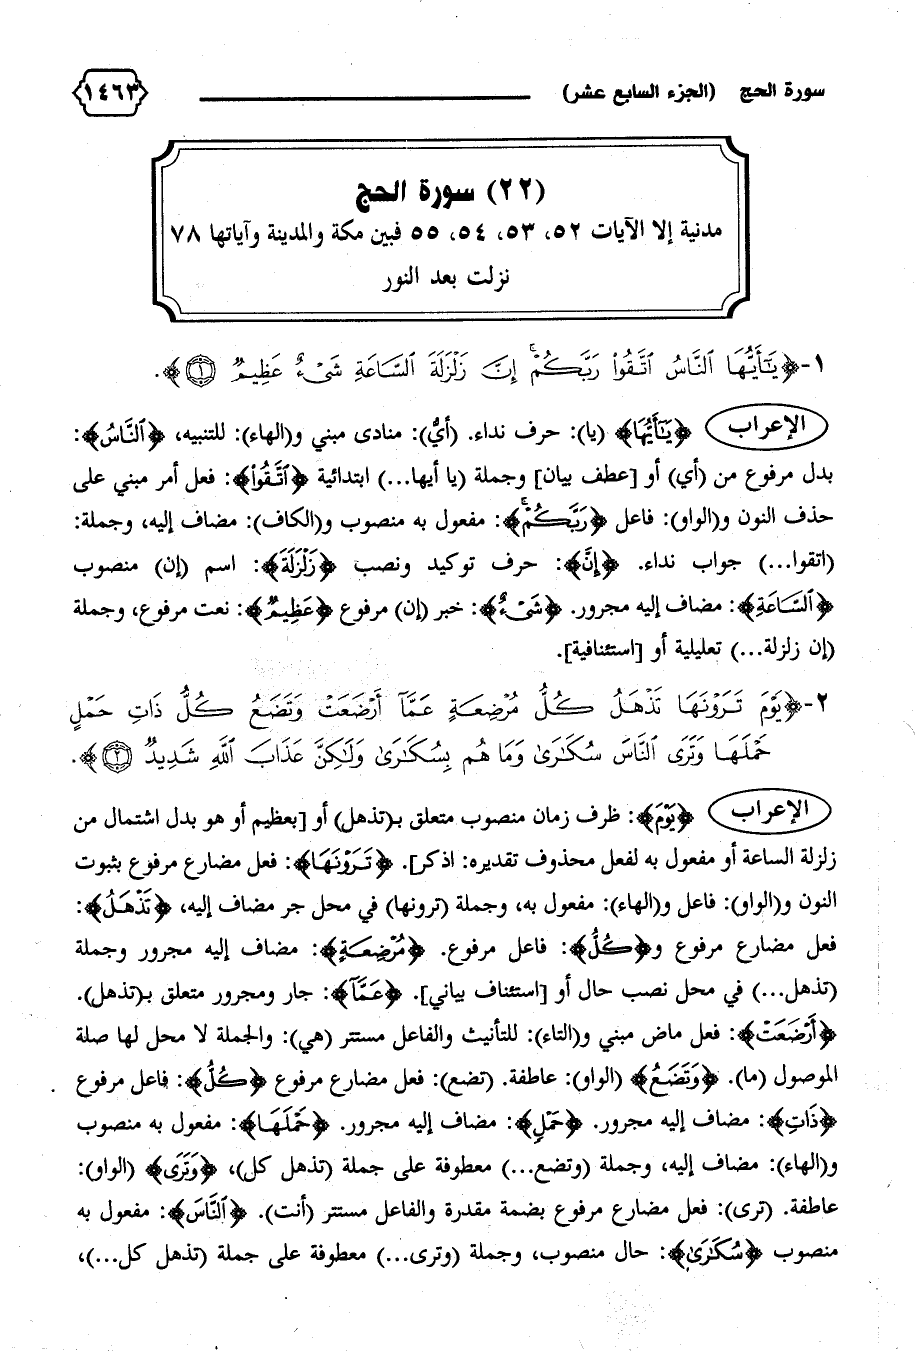 سورة الحج (الجزء السابع عشر) ١٤٦٣
(٢٢) سورة الحج
مدنية إلا الآيات ٥٢، ٥٣، ٥٤، ٥٥ فبين مكة والمدينة وآياتها ٧٨
نزلت بعد النور
١-﴿يَٰٓأَيُّهَا ٱلنَّاسُ ٱتَّقُوا۟ رَبَّكُمْ ۚ إِنَّ زَلْزَلَةَ ٱلسَّاعَةِ شَىْءٌ عَظِيمٌ ۝١﴾.
الإعراب ﴿يَٰٓأَيُّهَا﴾ (يا): حرف نداء. (أيُّ): منادى مبني و(الهاء): للتنبيه، ﴿ٱلنَّاسُ﴾:
بدل مرفوع من (أي) أو [عطف بيان] وجملة (يا أيها...) ابتدائية ﴿ٱتَّقُوا۟﴾: فعل أمر مبني على
حذف النون و(الواو): فاعل ﴿رَبَّكُمْ ۚ﴾: مفعول به منصوب و(الكاف): مضاف إليه، وجملة:
(اتقوا...) جواب نداء. ﴿إِنَّ﴾: حرف توكيد ونصب ﴿زَلْزَلَةَ﴾: اسم (إن) منصوب
﴿ٱلسَّاعَةِ﴾: مضاف إليه مجرور. ﴿شَىْءٌ﴾: خبر (إن) مرفوع ﴿عَظِيمٌ﴾: نعت مرفوع، وجملة
(إن زلزلة...) تعليلية أو [استئنافية].
٢-﴿يَوْمَ تَرَوْنَهَا تَذْهَلُ كُلُّ مُرْضِعَةٍ عَمَّآ أَرْضَعَتْ وَتَضَعُ كُلُّ ذَاتِ حَمْلٍ
حَمْلَهَا وَتَرَى ٱلنَّاسَ سُكَٰرَىٰ وَمَا هُم بِسُكَٰرَىٰ وَلَٰكِنَّ عَذَابَ ٱللَّهِ شَدِيدٌ ۝٢﴾.
الإعراب ﴿يَوْمَ﴾: ظرف زمان منصوب متعلق بـ(تذهل) أو [بعظيم أو هو بدل اشتمال من
زلزلة الساعة أو مفعول به لفعل محذوف تقديره: اذكر]. ﴿تَرَوْنَهَا﴾: فعل مضارع مرفوع بثبوت
النون و(الواو): فاعل و(الهاء): مفعول به، وجملة (ترونها) في محل جر مضاف إليه، ﴿تَذْهَلُ﴾:
فعل مضارع مرفوع و﴿كُلُّ﴾: فاعل مرفوع. ﴿مُرْضِعَةٍ﴾: مضاف إليه مجرور وجملة
(تذهل...) في محل نصب حال أو [استئناف بياني]. ﴿عَمَّآ﴾: جار ومجرور متعلق بـ(تذهل).
﴿أَرْضَعَتْ﴾: فعل ماض مبني و(التاء): للتأنيث والفاعل مستتر (هي): والجملة لا محل لها صلة
الموصول (ما). ﴿وَتَضَعُ﴾ (الواو): عاطفة. (تضع): فعل مضارع مرفوع ﴿كُلُّ﴾: فاعل مرفوع
﴿ذَاتِ﴾: مضاف إليه مجرور. ﴿حَمْلٍ﴾: مضاف إليه مجرور. ﴿حَمْلَهَا﴾: مفعول به منصوب
و(الهاء): مضاف إليه، وجملة (وتضع...) معطوفة على جملة (تذهل كل)، ﴿وَتَرَى﴾ (الواو):
عاطفة. (ترى): فعل مضارع مرفوع بضمة مقدرة والفاعل مستتر (أنت). ﴿ٱلنَّاسَ﴾: مفعول به
منصوب ﴿سُكَٰرَىٰ﴾: حال منصوب، وجملة (وترى...) معطوفة على جملة (تذهل كل...)،